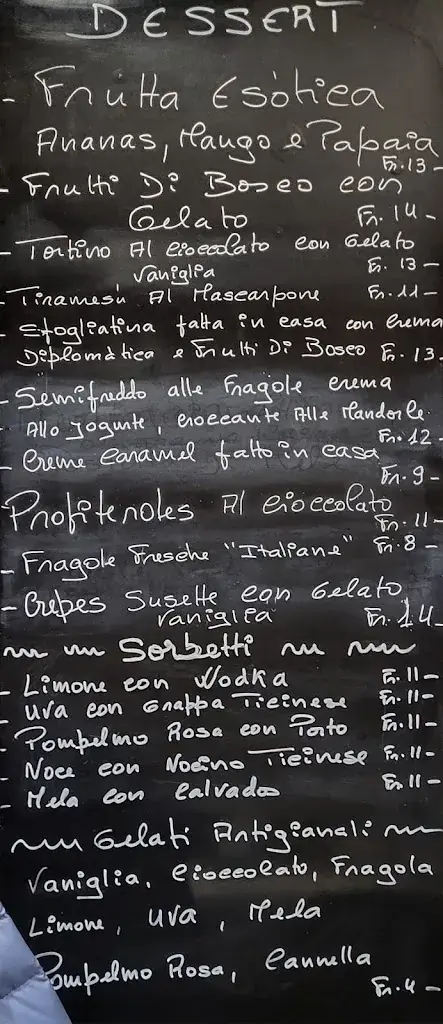 DESSERT
- Frutta Esotica
Ananas, Mango e Papaia
Fr. 13 -
- Frutti Di Bosco con
Gelato Fr. 14 -
- Tortino Al cioccolato con Gelato
vaniglia Fr. 13 -
- Tiramesù Al Mascarpone Fr. 11 -
- Sfogliatina fatta in casa con crema
Diplomàtica e Frutti Di Bosco Fr. 13.
- Semifreddo alle Fragole crema
Allo Jogurte, croccante Alle Mandorle.
Fr. 12 -
- Creme Caramel fatto in casa
Fr. 9 -
Profiteroles Al cioccolato
Fr. 11 -
- Fragole Fresche "Italiane" Fr. 8 -
- Crepes Susette con Gelato
vaniglia Fr. 14 -
~~ ~~ Sorbetti ~~ ~~
- Limone con Wodka Fr. 11 -
- Uva con Grappa Ticinese Fr. 11 -
- Pompelmo Rosa con Porto Fr. 11 -
- Noce con Nocino Ticinese Fr. 11 -
- Mela con Calvados Fr. 11 -
~~ Gelati Artigianali ~~
Vaniglia, Cioccolato, Fragola
Limone, Uva, Mela
Pompelmo Rosa, Cannella
Fr. 4 -